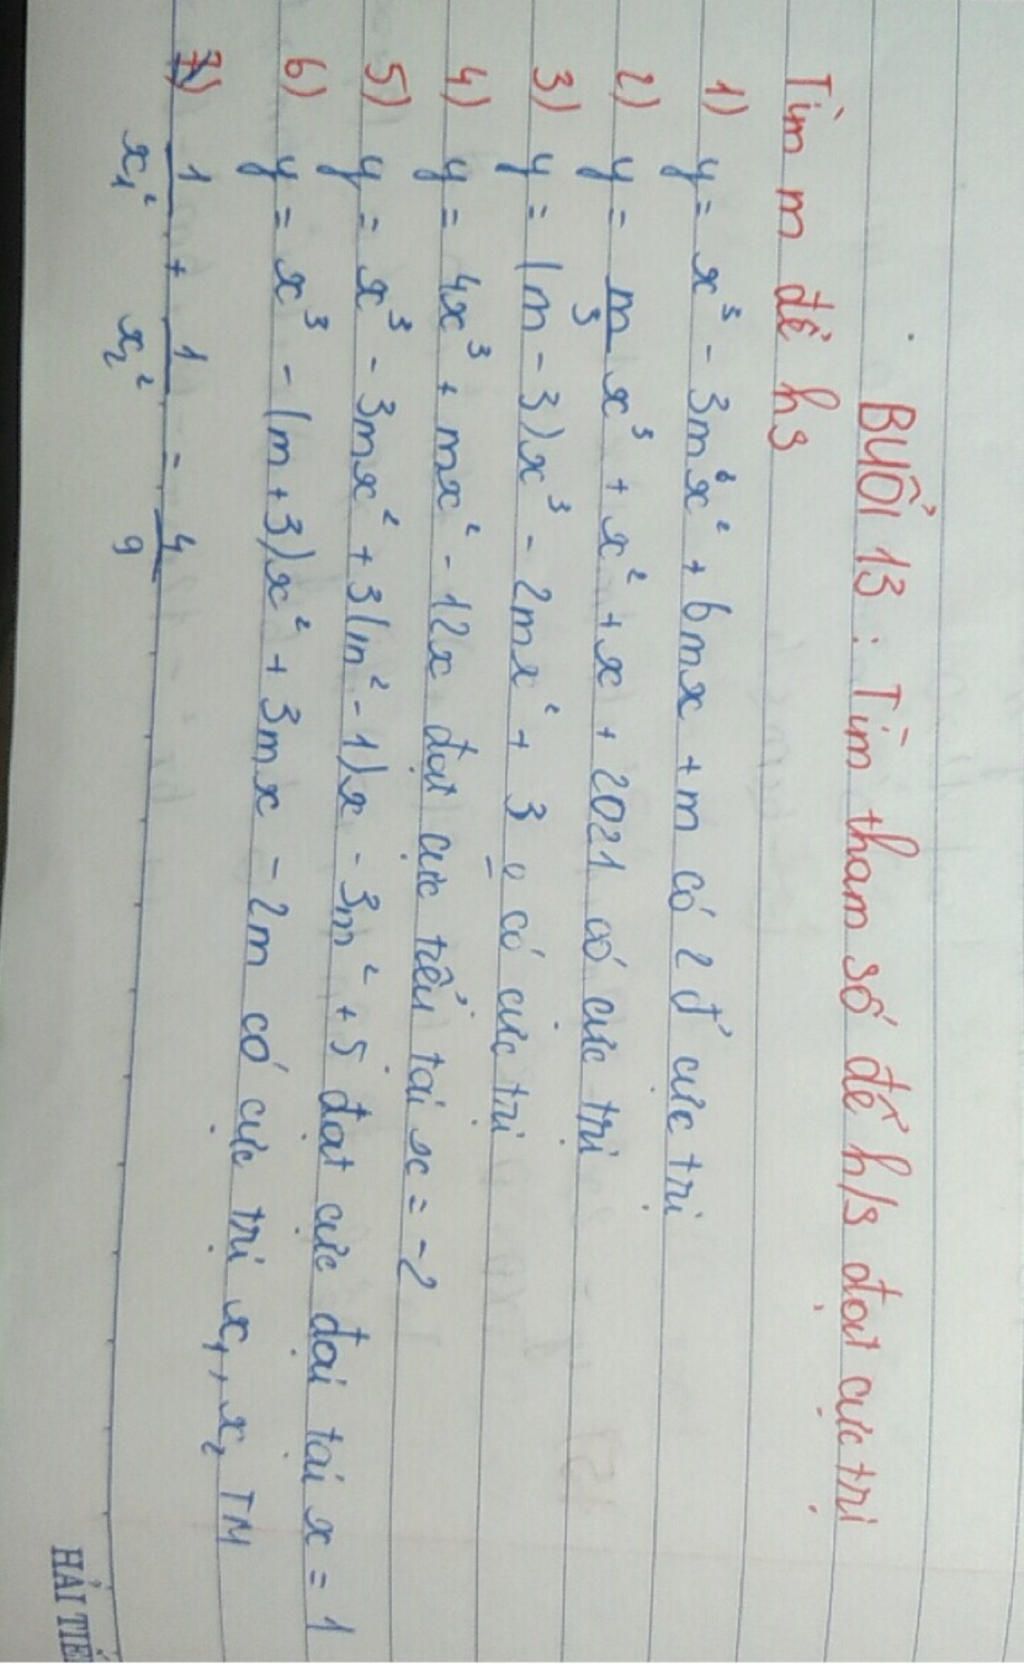 BUỔI 13 : Tìm tham số để h/s đạt cực trị
Tìm m để hs
1) y = x³ - 3mx² + 6mx + m có 2 đ' cực trị
2) y = m/3 x³ + x² + x + 2021 có cực trị
3) y = (m - 3)x³ - 2mx² + 3 có cực trị
4) y = 4x³ + mx² - 12x đạt cực tiểu tại x = -2
5) y = x³ - 3mx² + 3(m² - 1)x - 3m² + 5 đạt cực đại tại x = 1
6) y = x³ - (m + 3)x² + 3mx - 2m có cực trị x₁, x₂ TM
7) 1/x₁² + 1/x₂² = 4/9
HẢI TIẾ